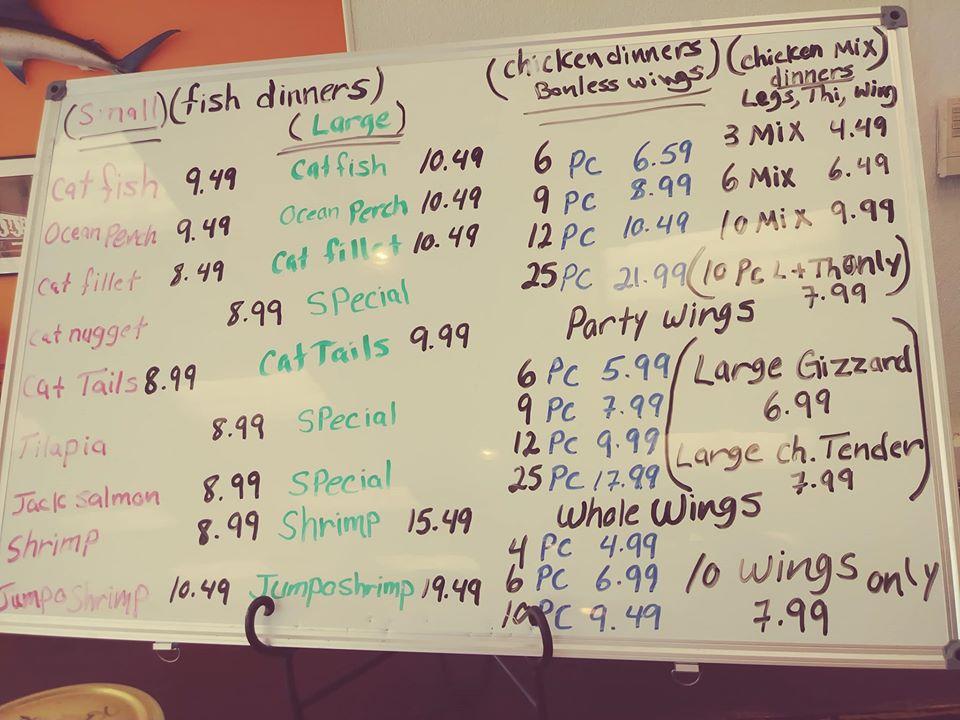 (Small) (fish dinners)
(Large)
Cat fish 9.49 Cat fish 10.49
Ocean Perch 9.49 Ocean Perch 10.49
Cat fillet 8.49 Cat fillet 10.49
Cat nugget 8.99 SPecial
Cat Tails 8.99 Cat Tails 9.99
Tilapia 8.99 SPecial
Jack Salmon 8.99 SPecial
Shrimp 8.99 Shrimp 15.49
Jumpo Shrimp 10.49 Jumposhrimp 19.49
(chicken dinners
Bonless wings)
6 PC 6.59
9 PC 8.99
12 PC 10.49
25 PC 21.99
Party wings
6 PC 5.99
9 PC 7.99
12 PC 9.99
25 PC 17.99
Whole Wings
4 PC 4.99
6 PC 6.99
10 PC 9.49
(chicken Mix)
dinners
Legs, Thi, wing
3 Mix 4.49
6 Mix 6.49
10 Mix 9.99
(10 Pc L + Th only)
7.99
(Large Gizzard
6.99
Large ch. Tender
7.99)
10 wings only
7.99